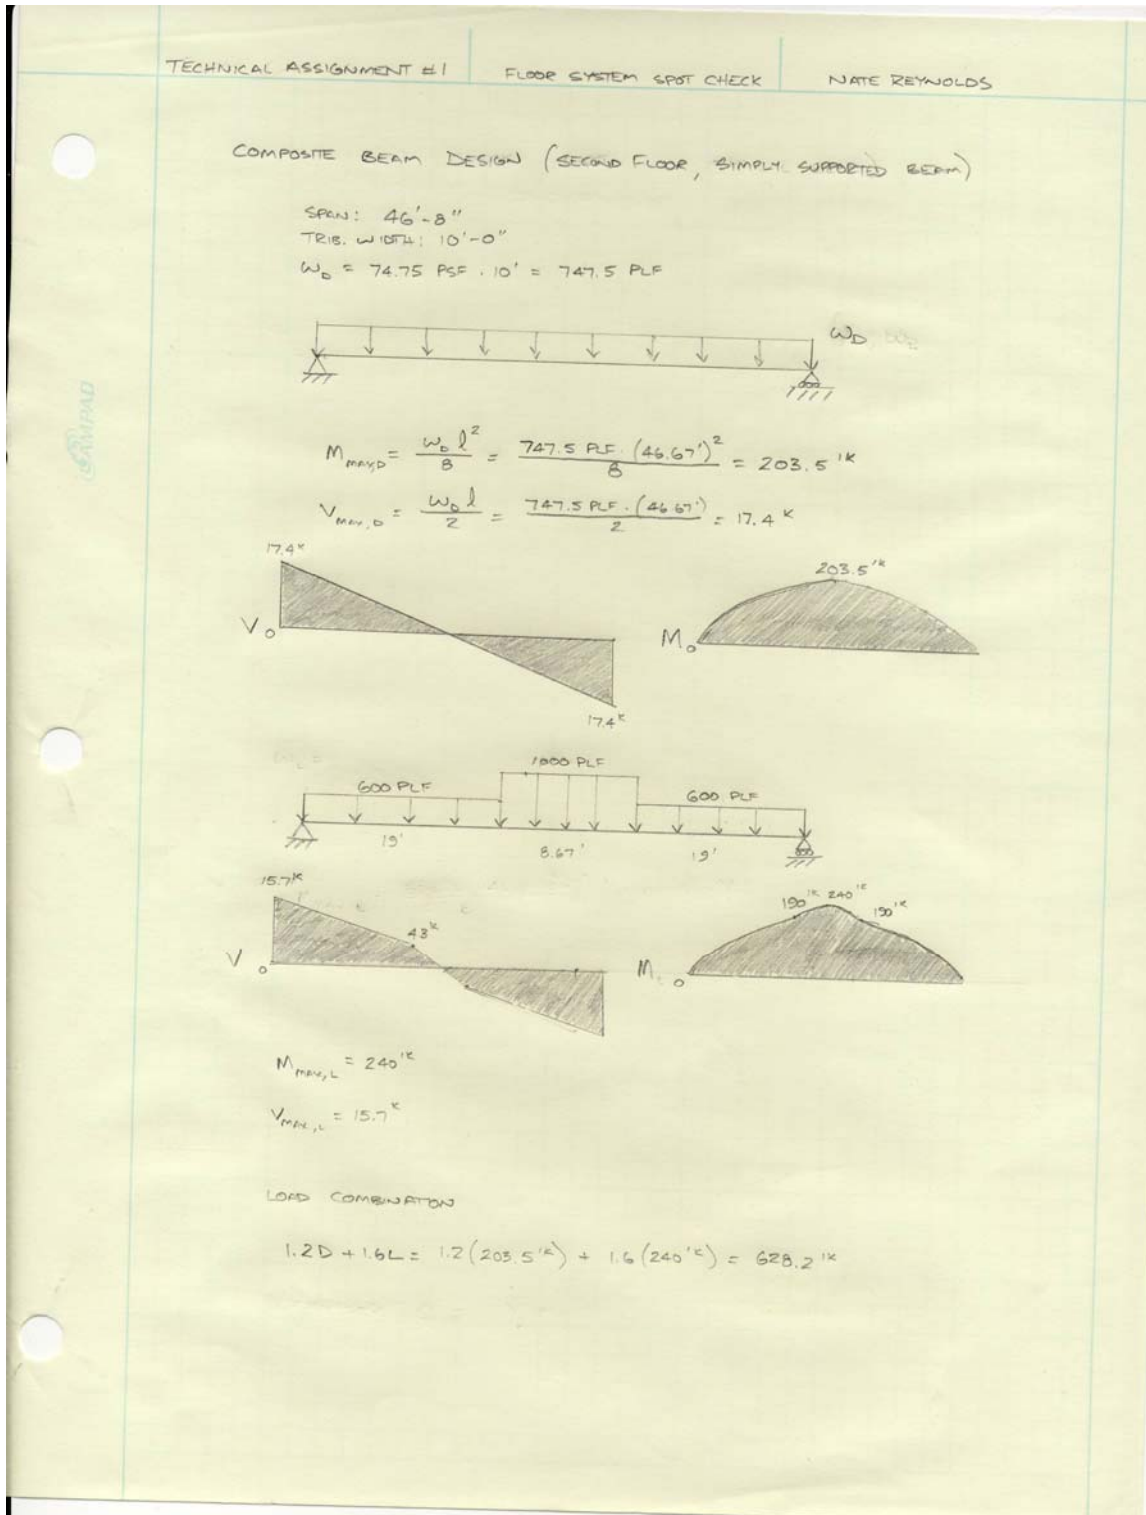 TECHNICAL ASSIGNMENT #1 FLOOR SYSTEM SPOT CHECK NATE REYNOLDS
COMPOSITE BEAM DESIGN (SECOND FLOOR, SIMPLY SUPPORTED BEAM)
SPAN: 46'-8"
TRIB. WIDTH: 10'-0"
ω_D = 74.75 PSF · 10' = 747.5 PLF
ω_D
AMPAD
M_max,D = ω_D l² / 8 = 747.5 PLF · (46.67')² / 8 = 203.5 'K
V_max,D = ω_D l / 2 = 747.5 PLF · (46.67') / 2 = 17.4 K
17.4 K
203.5 'K
V 0
M 0
17.4 K
1000 PLF
600 PLF 600 PLF
19' 8.67' 19'
15.7 K
190 'K 240 'K 190 'K
43 K
V 0
M 0
M_max,L = 240 'K
V_max,L = 15.7 K
LOAD COMBINATION
1.2D + 1.6L = 1.2(203.5 'K) + 1.6(240 'K) = 628.2 'K